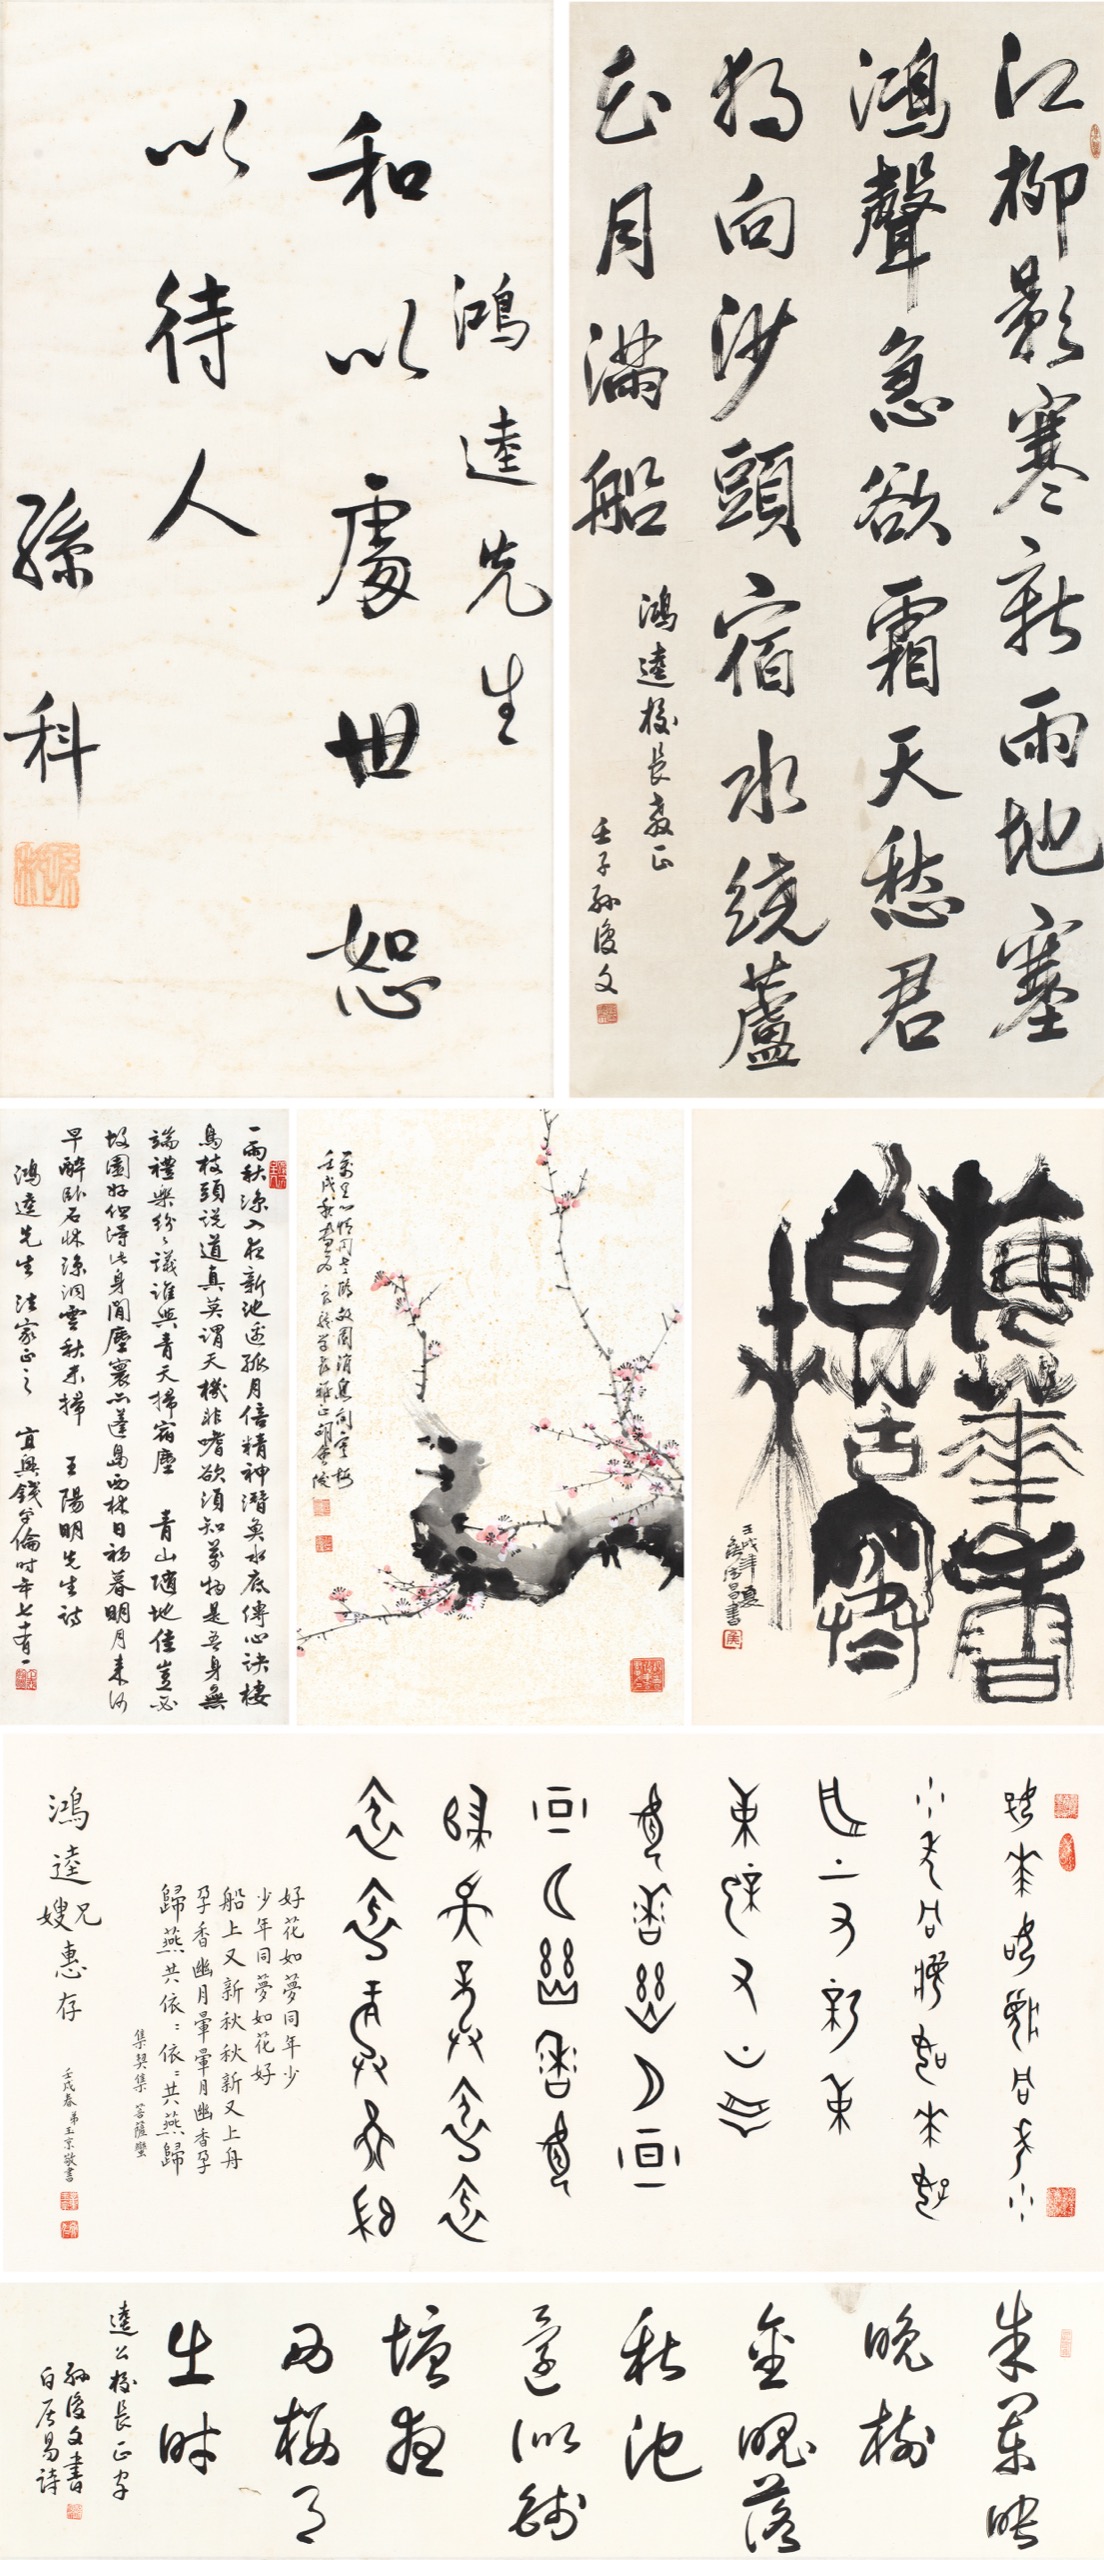 鴻逵先生
和以處世恕
以待人
孫科
江柳影寒新雨地塞
鴻聲急欲霜天愁君
獨向沙頭宿水繞蘆
花月滿船
鴻逵校長教正
壬子孫復文
一雨秋涼入夜新池邊孤月倍精神潛魚水底傳心訣棲
鳥枝頭說道真莫謂天機非嗜欲須知萬物是吾身無
端禮樂紛紛議誰與青天掃宿塵 青山隨地佳豈必
故園好但得此身閒塵寰亦蓬島西林日初暮明月來何
早醉臥石床涼洞雲秋未掃 王陽明先生詩
鴻逵先生法家正之 宜興錢倫時年七十有一
故園消息問寒梅
梅華香
自苦寒
來
壬戌年夏
書
好花如夢同年少
少年同夢如花好
船上又新秋秋新又上舟
孕香幽月暈暈月幽香孕
歸燕共依依依依共燕歸
集契集 菩薩蠻
鴻逵兄嫂惠存
壬戌春弟王京敬書
朱蘭映
晚樹
金魄落
秋池
還似錢
塘夜
西樓月
出時
逵公校長正字
孫復文書
白居易詩